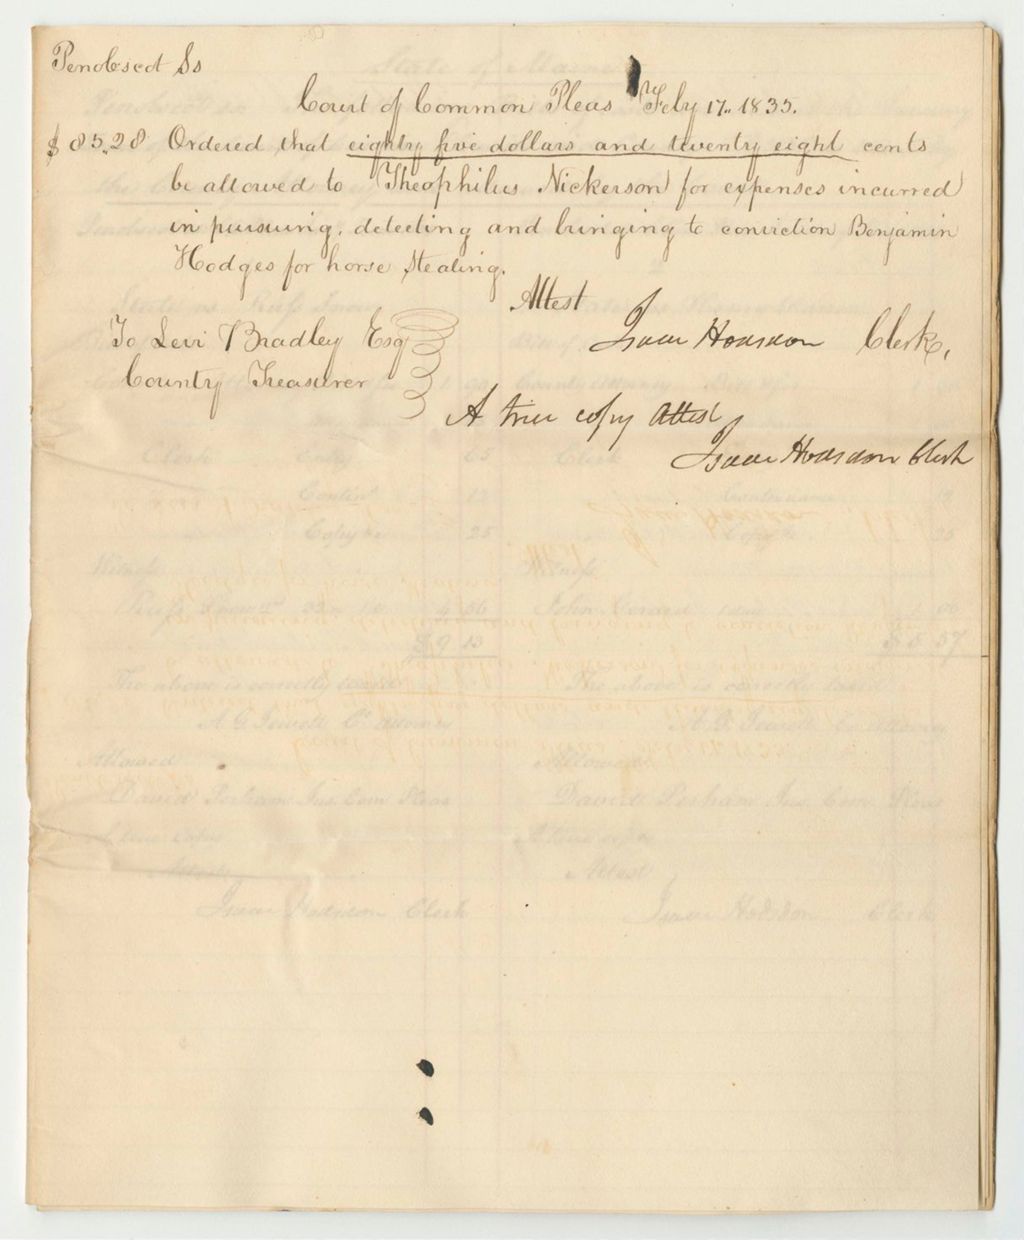 Penobscot Ss
Court of Common Pleas Feby 17. 1835.
$85.28 Ordered that eighty five dollars and twenty eight cents
be allowed to Theophilus Nickerson for expenses incurred
in pursuing, detecting and bringing to conviction Benjamin
Hodges for horse stealing.
Attest
Isaac Hodsdon Clerk,
To Levi Bradley Esq
County Treasurer
A true copy Attest
Isaac Hodsdon Clerk